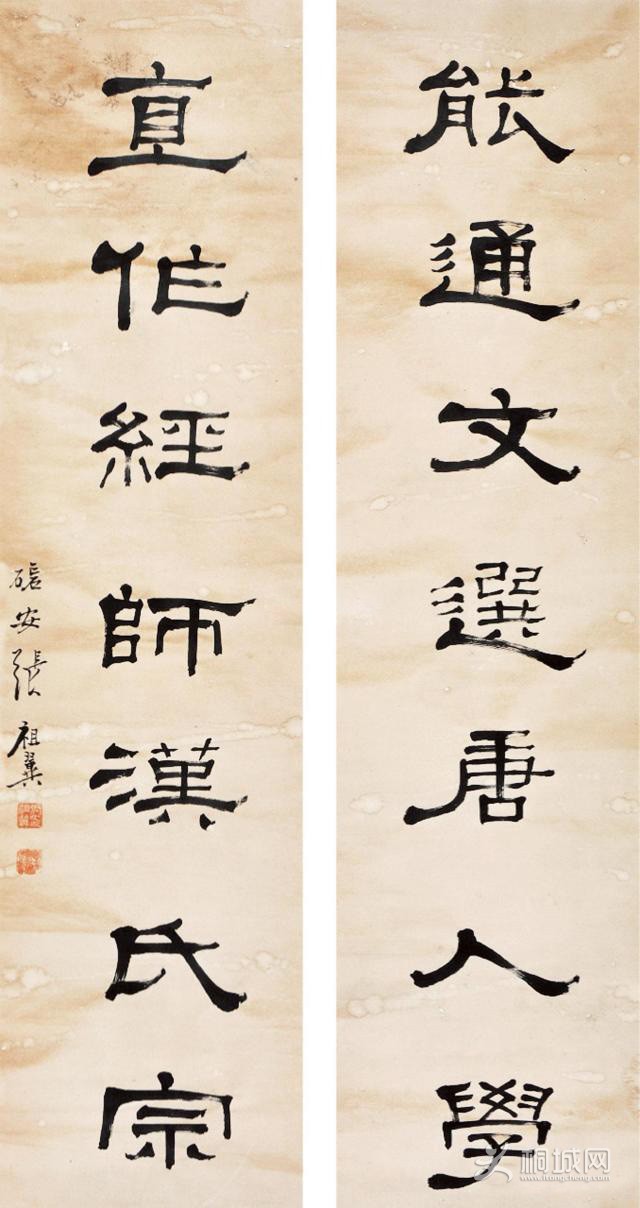 能通文選唐人學
直作經師漢氏宗
磖安張祖翼
桐城网
www.itongcheng.com